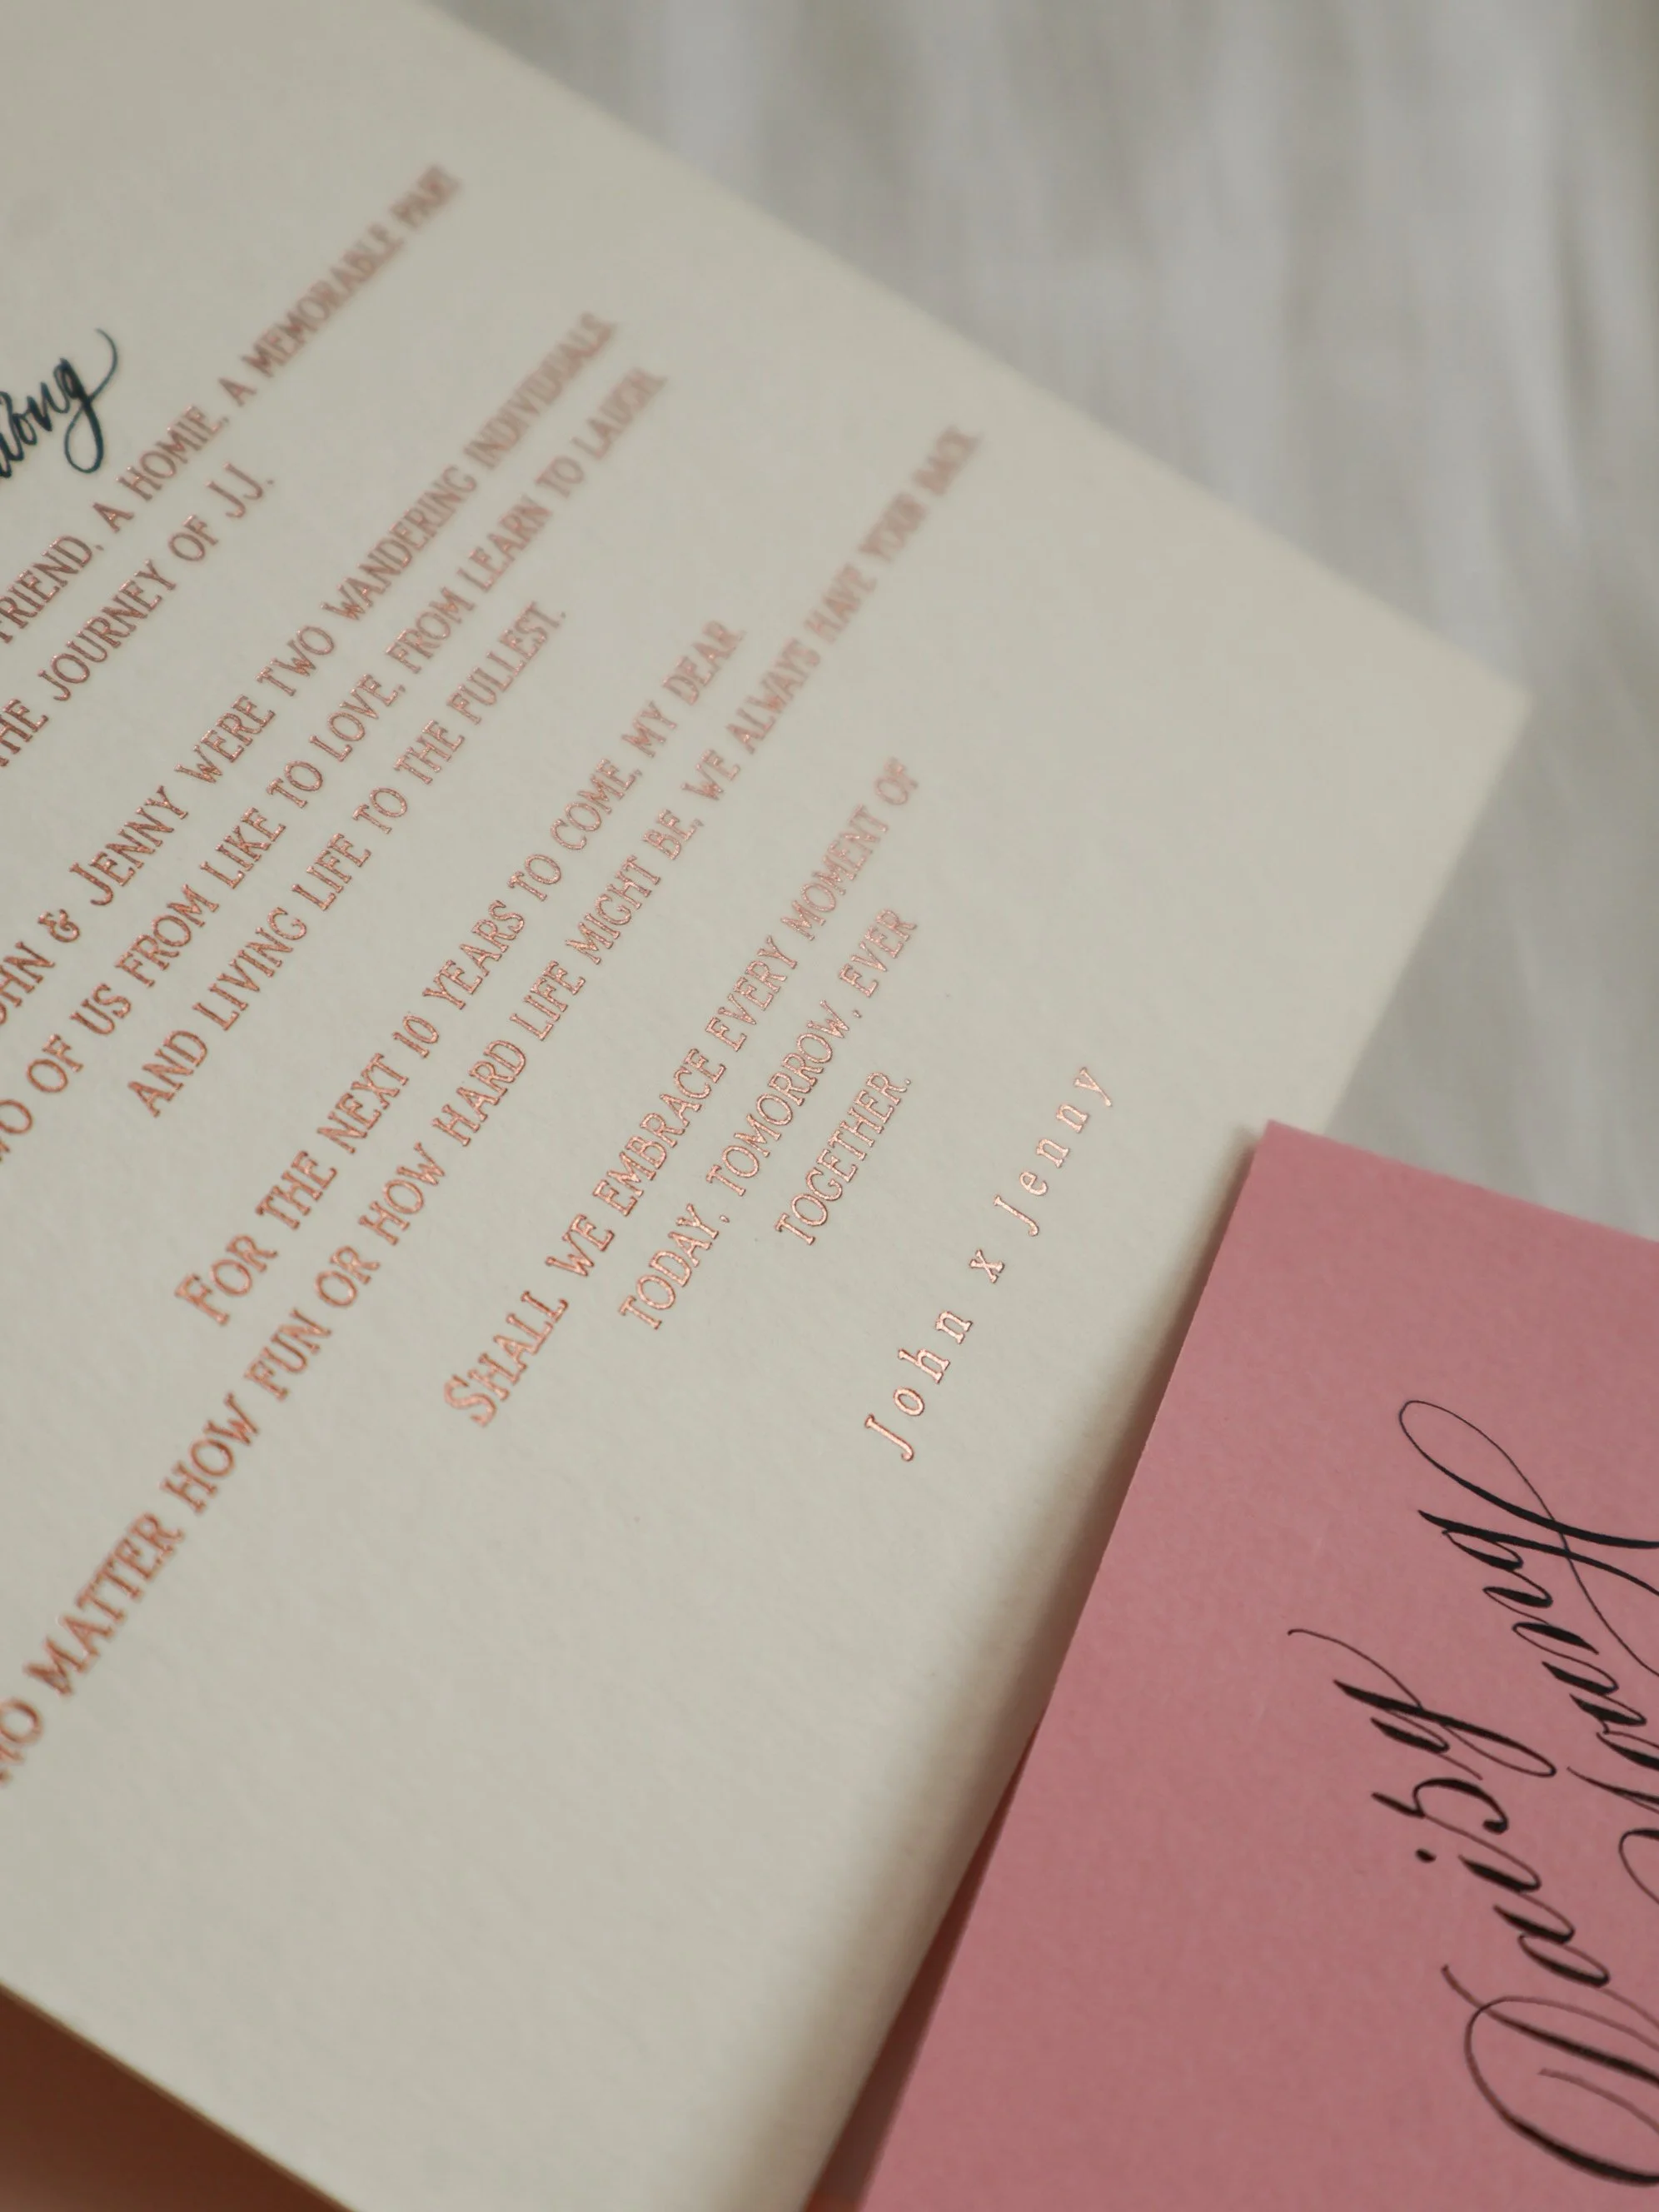 FRIEND, A HOMIE, A MEMORABLE PART
THE JOURNEY OF JJ.
JOHN & JENNY WERE TWO WANDERING INDIVIDUALS.
TWO OF US FROM LIKE TO LOVE, FROM LEARN TO LAUGH,
AND LIVING LIFE TO THE FULLEST.
FOR THE NEXT 10 YEARS TO COME, MY DEAR
NO MATTER HOW FUN OR HOW HARD LIFE MIGHT BE, WE ALWAYS HAVE YOUR BACK.
SHALL WE EMBRACE EVERY MOMENT OF
TODAY, TOMORROW, EVER
TOGETHER.
John x Jenny
Daisy